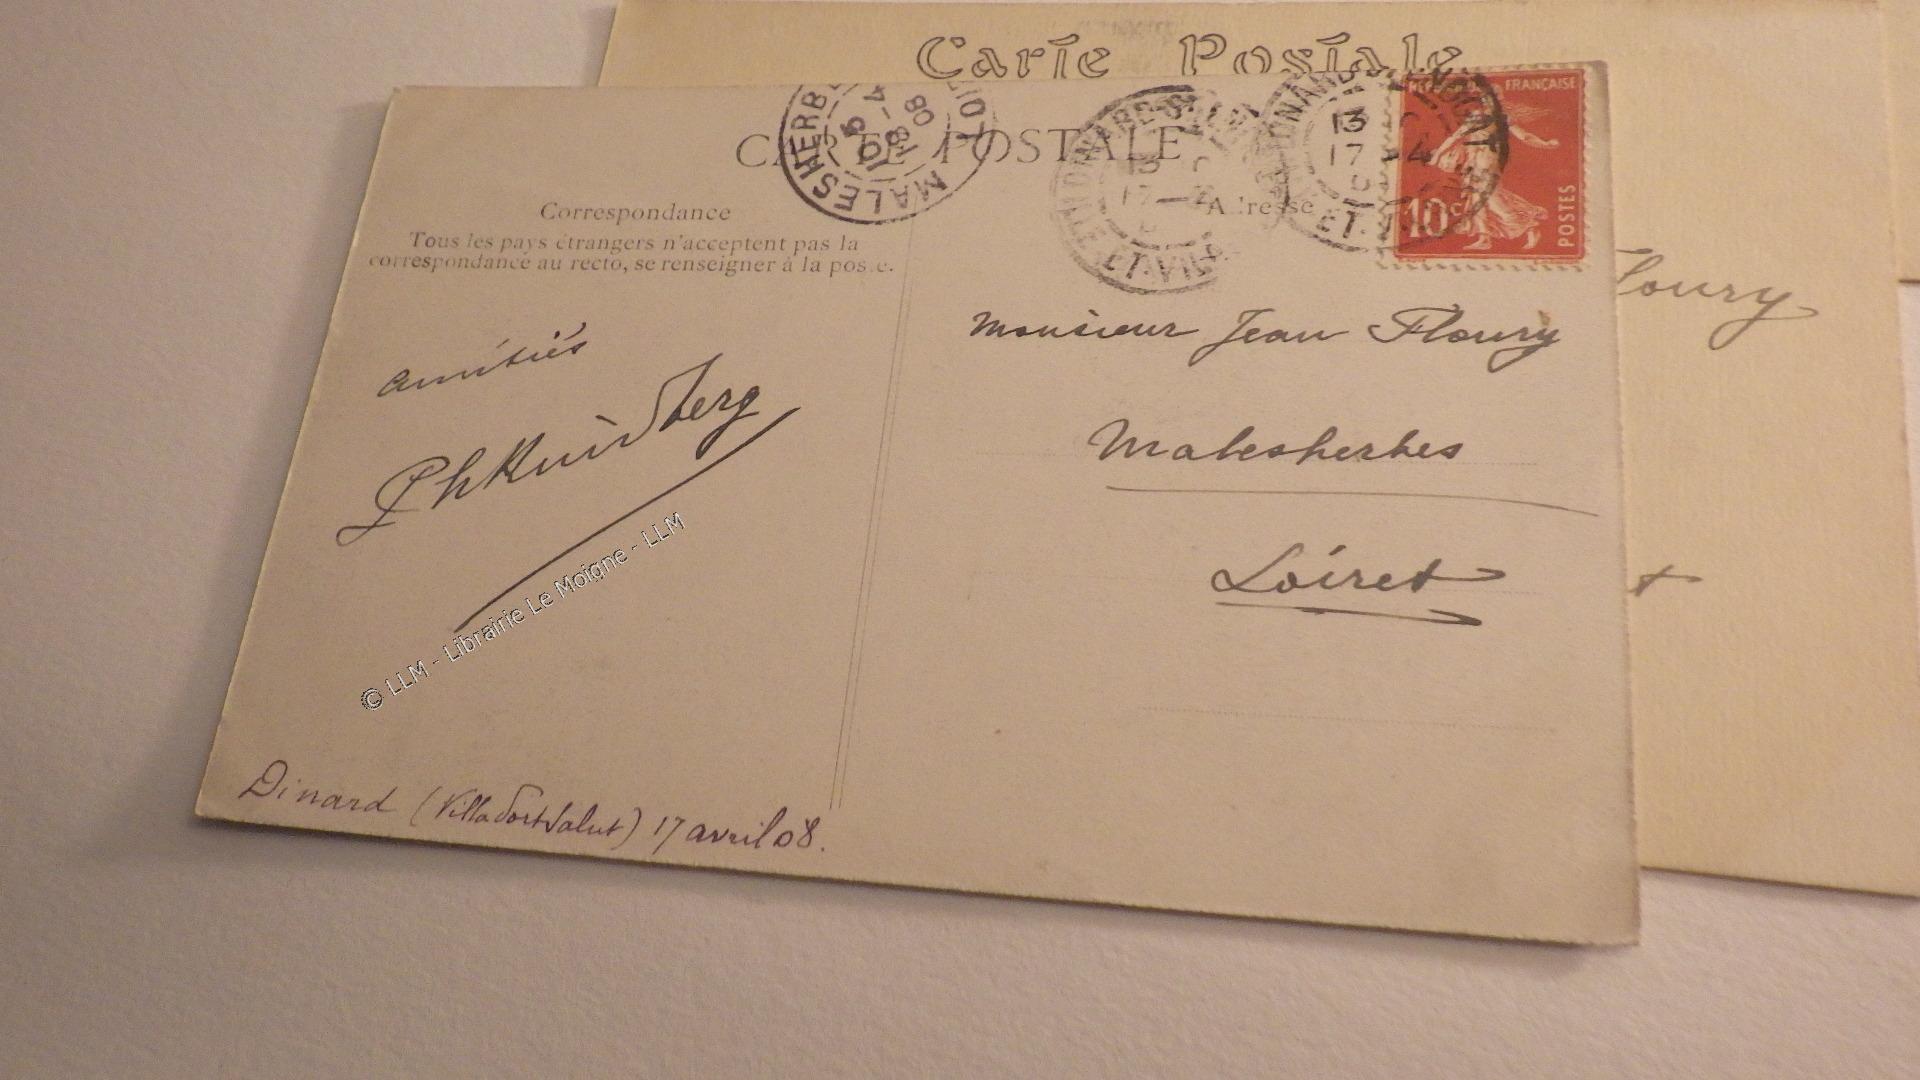 Carte Postale
CARTE POSTALE
MALESHERBES
10
18-4
08
LOIRET
13
17-4
ET-VIL
REPUBLIQUE FRANÇAISE
10c
POSTES
Correspondance
Tous les pays étrangers n'acceptent pas la
correspondance au recto, se renseigner à la poste.
Adresse
amitiés
Monsieur Jean Floury
Malesherbes
Loiret
Floury
t
© LLM - Librairie Le Moigne - LLM
Dinard (Villa Port Salut) 17 avril 08.